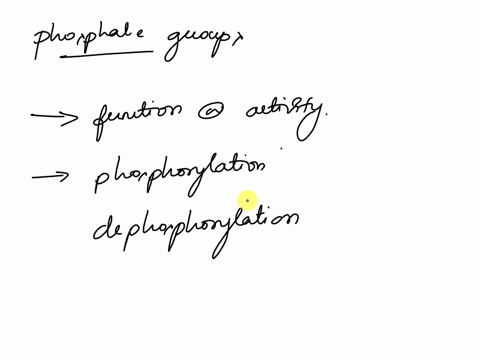 phosphate groups
→ function or activity.
→ phosphorylation
dephosphorylation